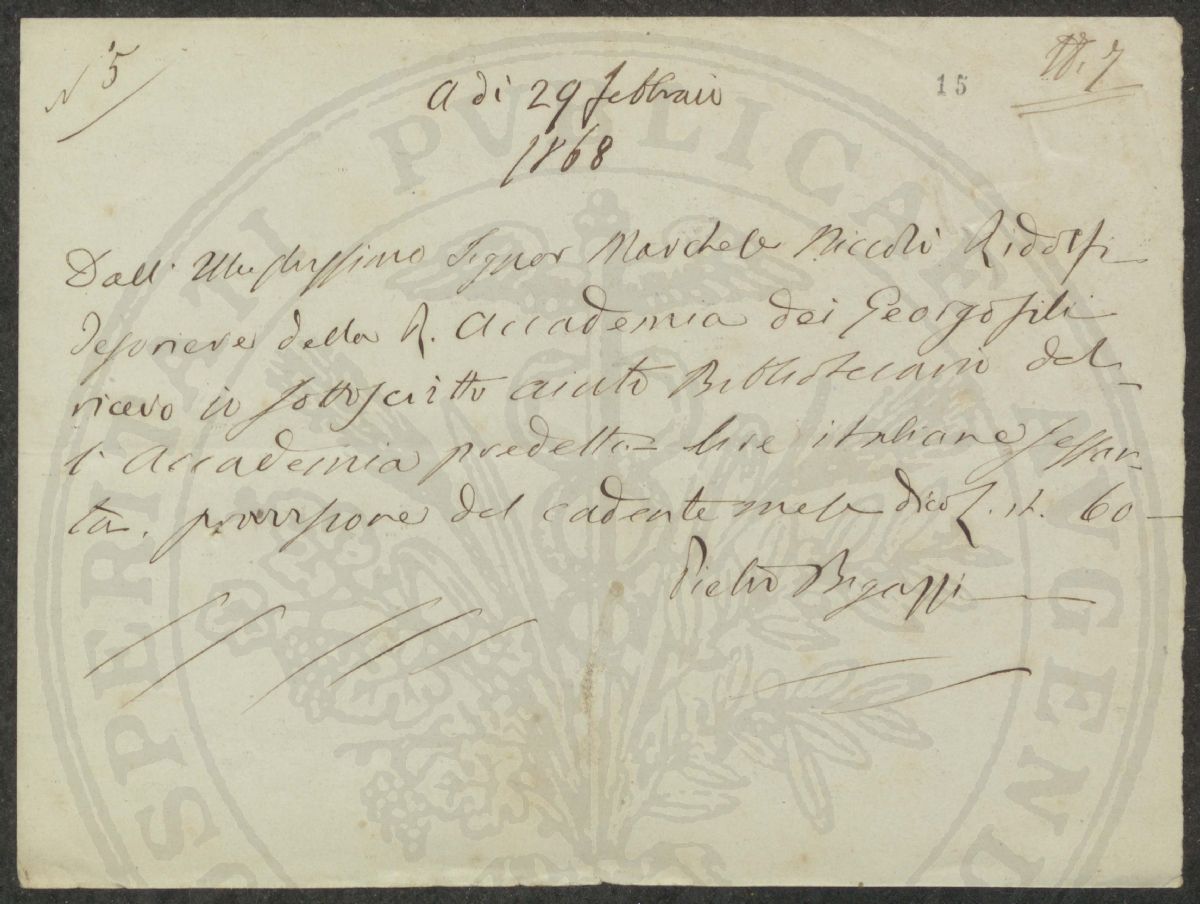 N 5
A dì 29 febbraio
1868
15
Dall' Illustrissimo Signor Marchese Niccolò Ridolfi
Tesoriere della R. Accademia dei Georgofili
ricevo io sottoscritto aiuto Bibliotecario del-
l'Accademia predetta lire italiane sessan-
ta. provvisione del cadente mese dico L. it. 60 —
Pietro Bigazzi
PROSPERITATI PVBLICAE AVGENDAE